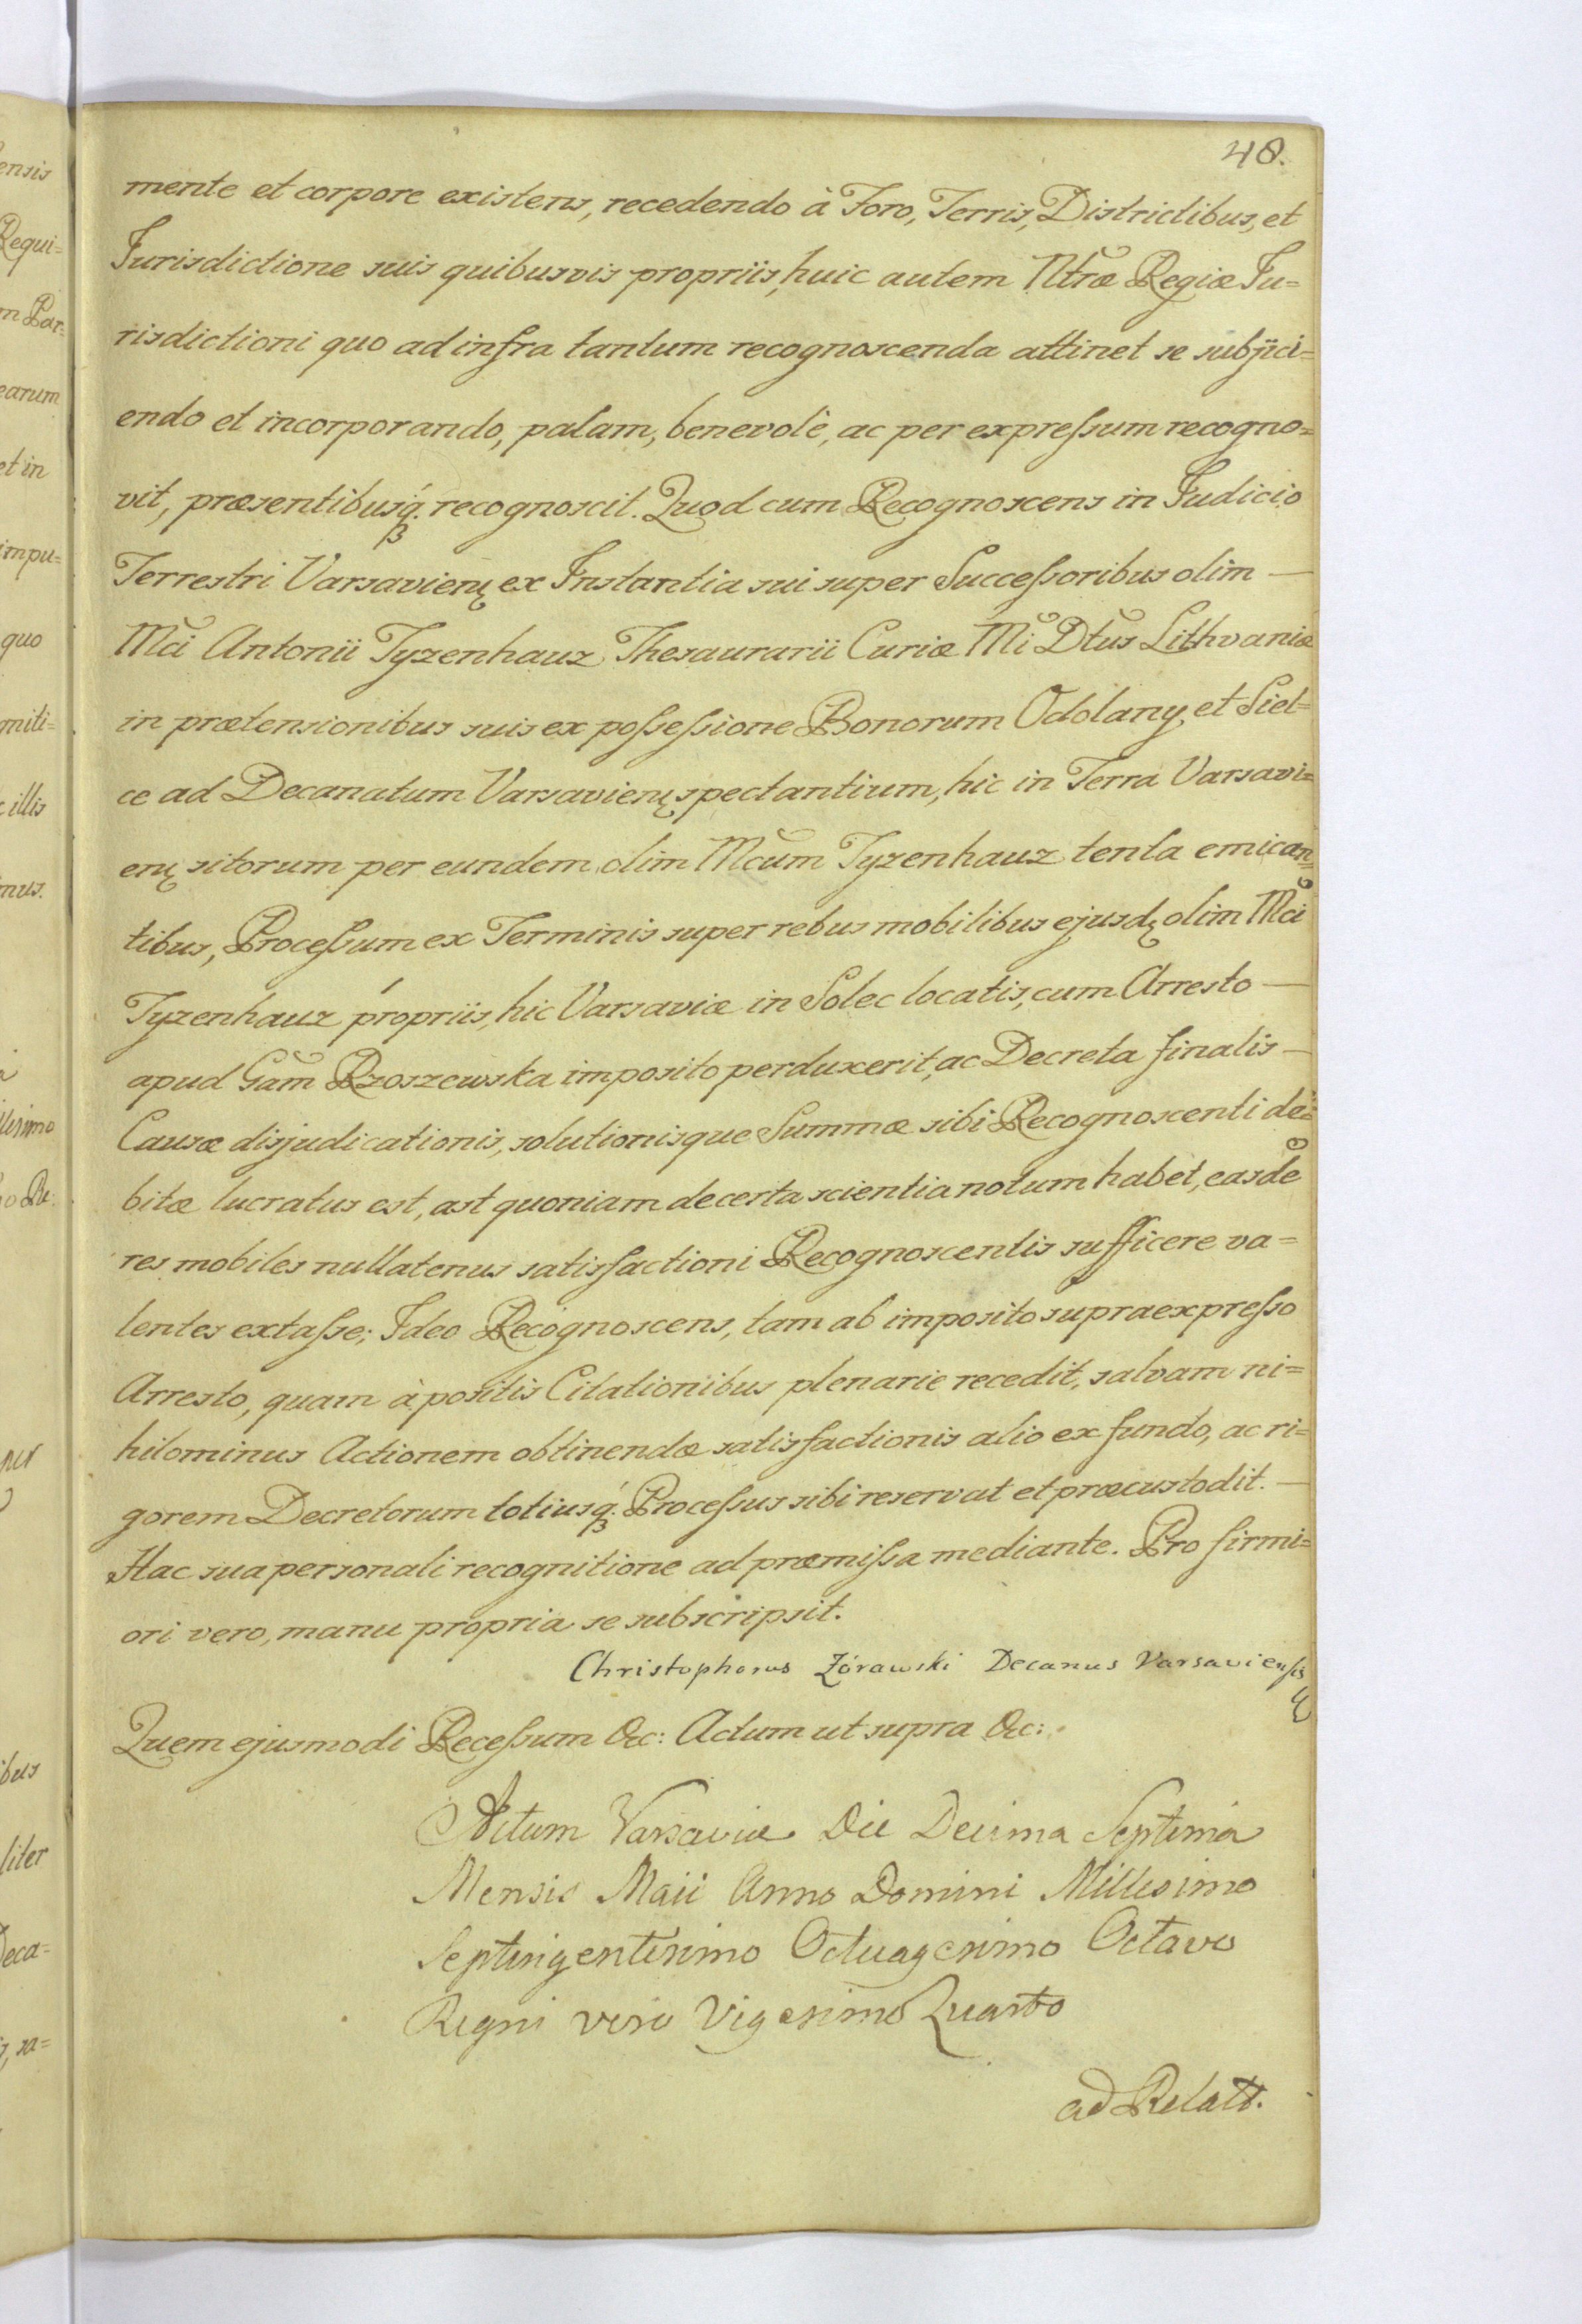 48.
mente et corpore existens, recedendo à Foro, Terris, Districtibus, et
Jurisdictione suis quibusvis propriis, huic autem Ntræ Regiæ Ju=
risdictioni quo ad infra tantum recognoscenda attinet se subjici=
endo et incorporando, palam, benevolè, ac per expressum recogno=
vit, præsentibusq; recognoscit. Quod cum Recognoscens in Judicio
Terrestri Varsavien; ex Instantia sui super Successoribus olim —
Mci Antonii Tyzenhauz Thesaurarii Curiæ Mi Dtus Lithvaniæ
in prætensionibus suis ex possessione Bonorum Odolany, et Siel=
ce ad Decanatum Varsavien; spectantium, hic in Terra Varsavi=
en; sitorum per eundem olim Mcum Tyzenhauz tenta emican=
tibus, Processum ex Terminis super rebus mobilibus ejusd; olim Mci
Tyzenhauz propriis, hic Varsaviæ in Solec locatis, cum Arresto —
apud Gam Rzoszewska imposito perduxerit, ac Decreta finalis —
Causæ disjudicationis, solutionisque Summæ sibi Recognoscenti de=
bitæ lucratus est, ast quoniam de certa scientia notum habet, easde
res mobiles nullatenus satisfactioni Recognoscentis sufficere va=
lentes extasse; Ideo Recognoscens, tam ab imposito supraexpresso
Arresto, quam à positis Citationibus plenarie recedit, salvam ni=
hilominus Actionem obtinendæ satisfactionis alio ex fundo, ac ri=
gorem Decretorum totiusq; Processus sibi reservat et præcustodit. —
Hac sua personali recognitione ad præmissa mediante. Pro firmi=
ori vero, manu propria se subscripsit.
Christophorus Zórawski Decanus Varsaviensis
Quem ejusmodi Recessum &c: Actum ut supra &c:
Actum Varsaviæ Die Decima Septima
Mensis Maii Anno Domini Millesimo
Septingentesimo Octuagesimo Octavo
Regni vero Vigesimo Quarto
ad Relatt.